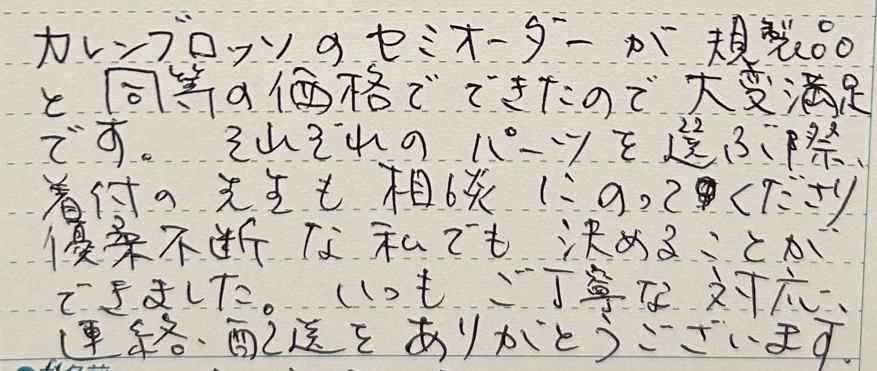 カレンブロッソのセミオーダーが規製品
と同等の価格でできたので大変満足
です。それぞれのパーツを選ぶ際、
着付の先生も相談にのってくださり
優柔不断な私でも決めることが
できました。いつもご丁寧な対応、
連絡、配送をありがとうございます。